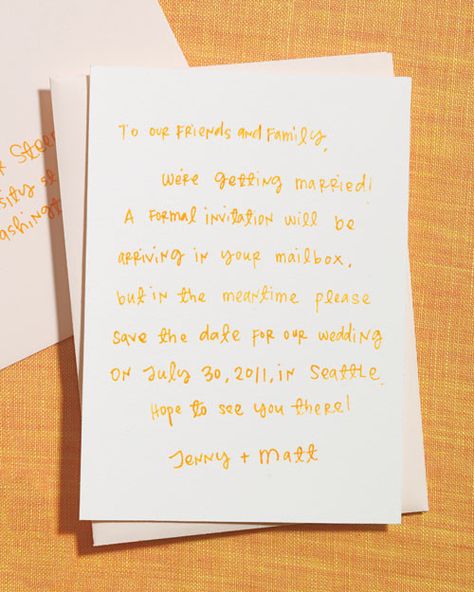 To our friends and family,
We're getting married!
A formal invitation will be
arriving in your mailbox,
but in the meantime please
save the date for our wedding
on July 30, 2011, in Seattle.
Hope to see you there!
Jenny + Matt